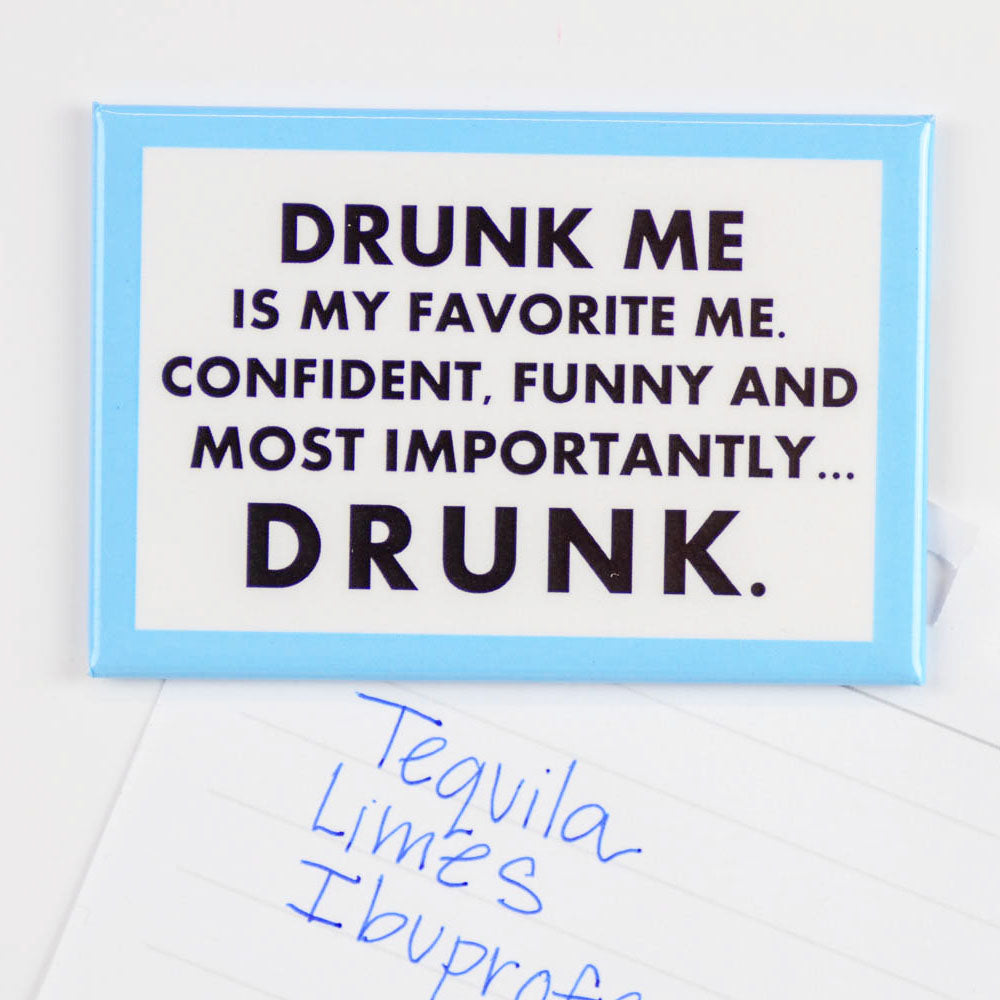 DRUNK ME
IS MY FAVORITE ME.
CONFIDENT, FUNNY AND
MOST IMPORTANTLY...
DRUNK.
Tequila
Limes
Ibuprofe